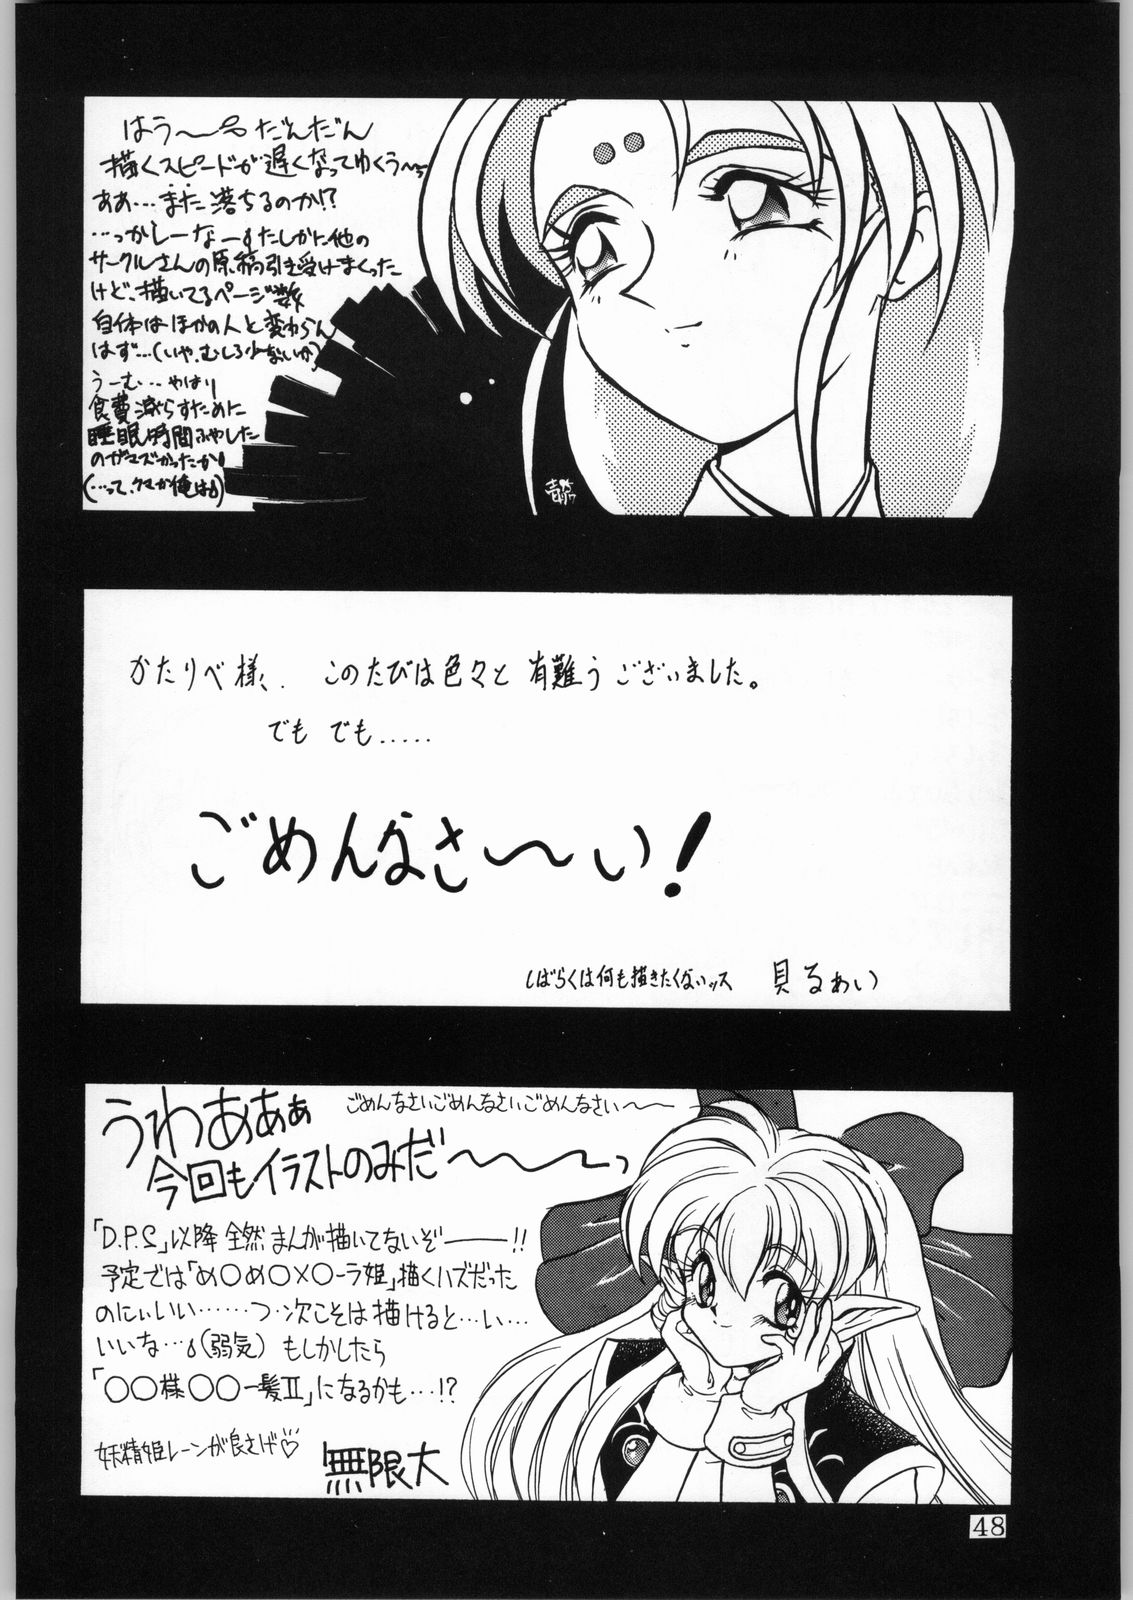 はう～。だんだん
描くスピードが遅くなってゆくう～
ああ…また落ちるのか!?
…っかしーなーすたしかに他の
サークルさんの原稿引き受けまくった
けど、描いてるページ数
自体はほかの人と変わらん
はず…(いや、むしろ少ないか)
うーむ…やはり
食費減らすために
睡眠時間ふやした
のがマズかったか
(…って、クマか俺は)
かたりべ様、このたびは色々と有難うございました。
でもでも.....
ごめんなさ～い!
しばらくは何も描きたくないッス 貝るあい
うわあああ
ごめんなさいごめんなさいごめんなさい～
今回もイラストのみだ～～っ
「D.P.S」以降全然まんが描いてないぞ──!!
予定では「め○め○×○ーラ姫」描くハズだった
のにぃいい……つ・次こそは描けると…い…
いいな…(弱気) もしかしたら
「○○様○○一髪Ⅱ」になるかも…!?
妖精姫レーンが良さげ♡
無限大
48